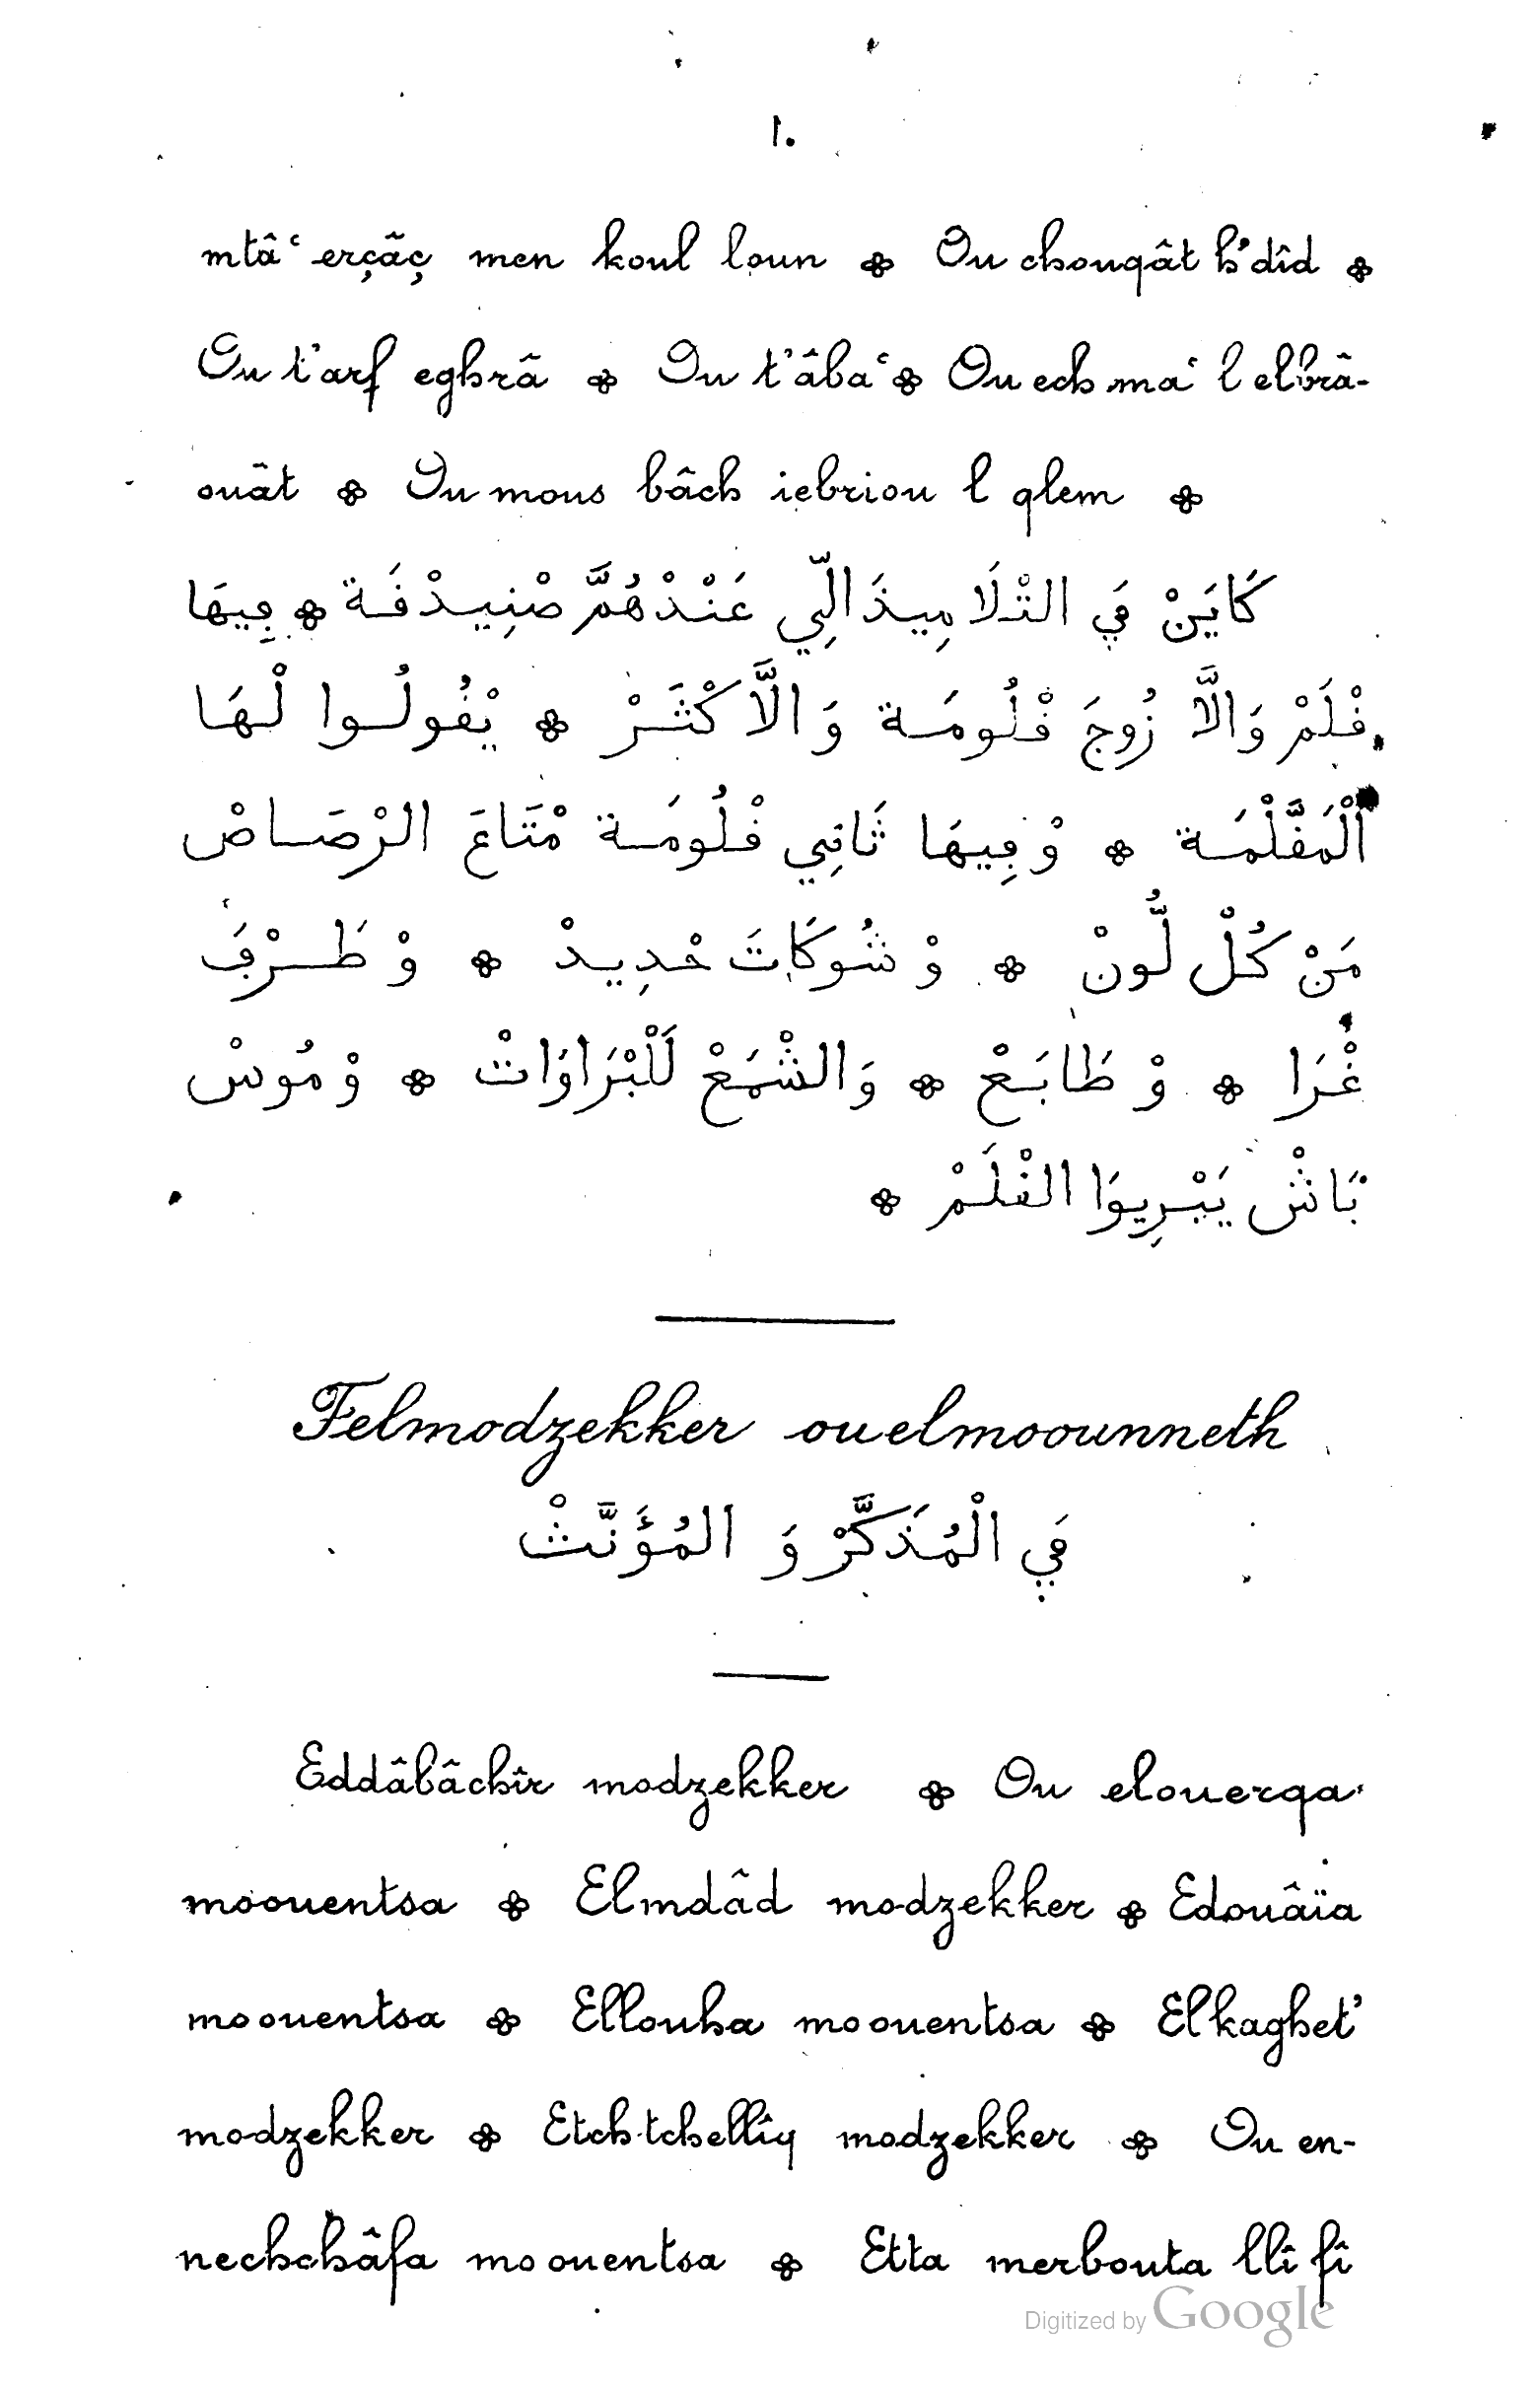 ١٠
mtâʿ erçâç men koul loun ✤ Ou chouqât h'dîd ✤
Ou t'arf eghrâ ✤ Ou t'âbaʿ ✤ Ou ech maʿ l elbrâ-
ouât ✤ Ou mous bâch iebriou l qlem ✤
كَايَنْ فَي التْلَامِيذَ الِّي عَنْدْهُمَّ صْنِيدْفَة ✤ ڢِيهَا
فْلَمْ وَالَّا زُوجَ فْلُومَة وَالَّا كْثَرْ ✤ يْفُولُوا لْهَا
الْمَفَّلْمَة ✤ وْ ڢِيهَا ثَانِي فْلُومَة مْتَاعَ الرْصَاصْ
مَنْ كُلْ لُّونْ ✤ وْ شُوكَاتَ حْدِيدْ ✤ وْ طَرْڢَ
غْرَا ✤ وْ طَابَعْ ✤ وَالشْمَعْ لَلْبْرَاوَاتْ ✤ وْ مُوسْ
بَاشْ يَبْرِيوَا الفْلَمْ ✤
Felmodzekker ouelmoounneth
فَي الْمُذَكَّرْ وَ المُؤَنَّثْ
Eddâbâchîr modzekker ✤ Ou elouerqa
moouentsa ✤ Elmdâd modzekker ✤ Edouâïa
moouentsa ✤ Ellouha moouentsa ✤ Elkaghet'
modzekker ✤ Etch-tchellîq modzekker ✤ Ou en-
nechchâfa moouentsa ✤ Etta merbouta llî fî
Digitized by Google